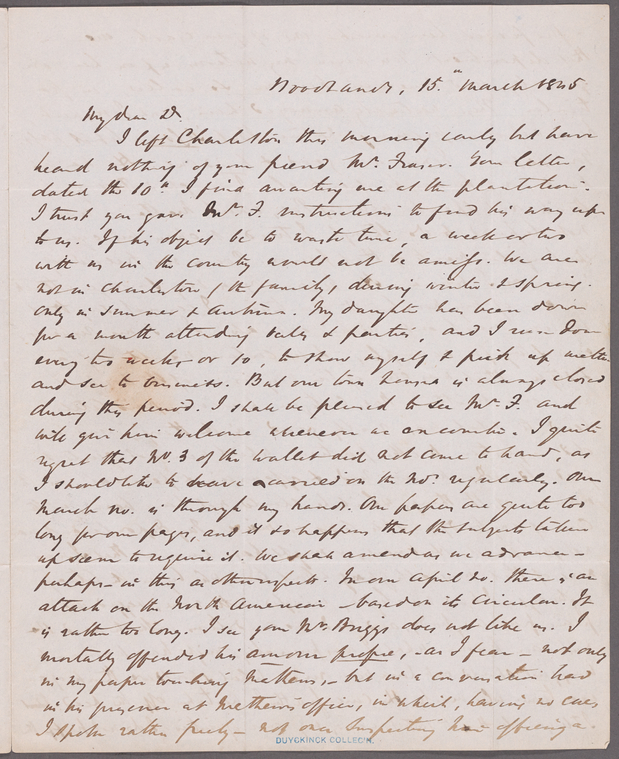 Woodlands, 15th March 1845
My dear D.
I left Charleston this morning early but have
heard nothing of your friend Mr. Fraser. Your letter,
dated the 10th I find awaiting me at the plantation.
I trust you gave Mr. F. instructions to find his way up
to us. If his object be to waste time, a week or two
with us in the country would not be amiss. We are
not in Charleston (the family) during winter & spring.
only in summer & Autumn. My daughter has been down
for a month attending balls & parties, and I run down
every two weeks or so to show myself & pick up matter
and see to business. But our town house is always closed
during this period. I shall be pleased to see Mr. F. and
will give him welcome whenever we encounter. I quite
regret that No. 3 of the wallet did not come to hand, as
I should like to have carried on the nos. regularly. Our
March no. is through my hands. Our papers are quite too
long for our pages, and it so happens that the subjects taken
up seem to require it. We shall amend as we advance—
perhaps—in this as other respects. In our April no. there is an
attack on the North American—based on its Circular. It
is rather too long. I see your Mr Briggs does not like us. I
mortally offended his amour propre,—as I fear—not only
in my paper touching Mathews,—but in a conversation had
in his presence at Mathews' office, in which, having no cues
I spoke rather freely—not once suspecting how offering a
DUYCKINCK COLLEC'N.